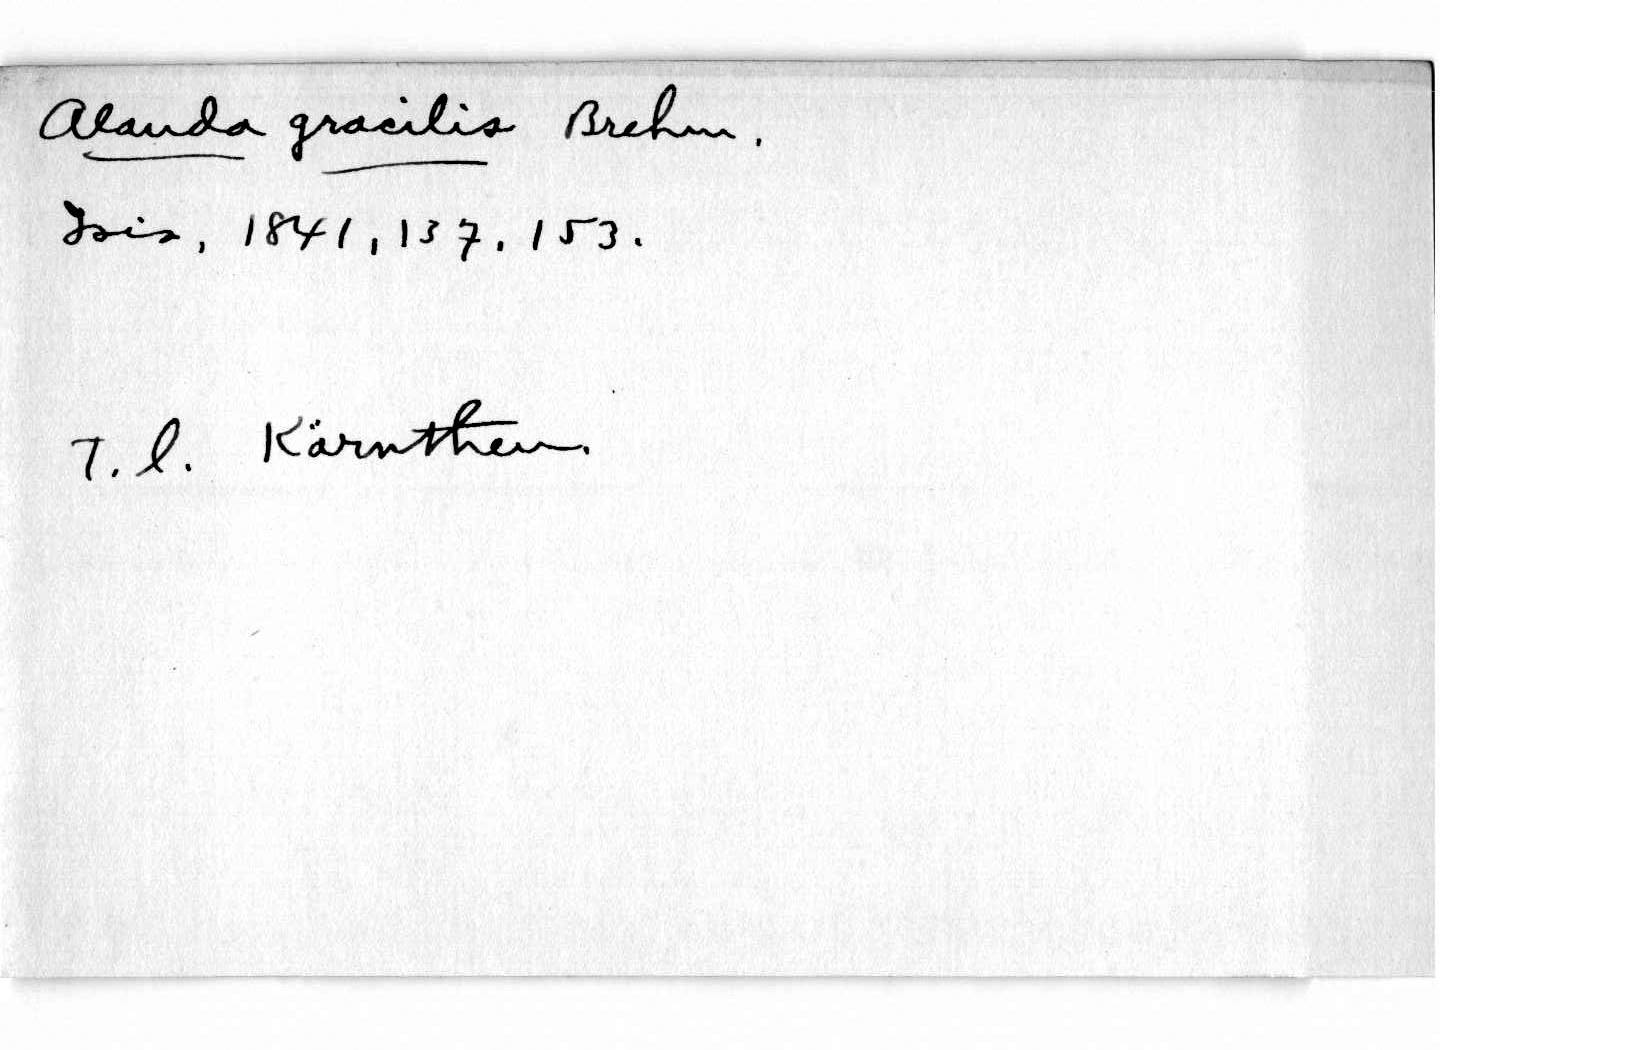 Alauda gracilis Brehm.
Isis, 1841, 137, 153.
T. l. Kärnthen.